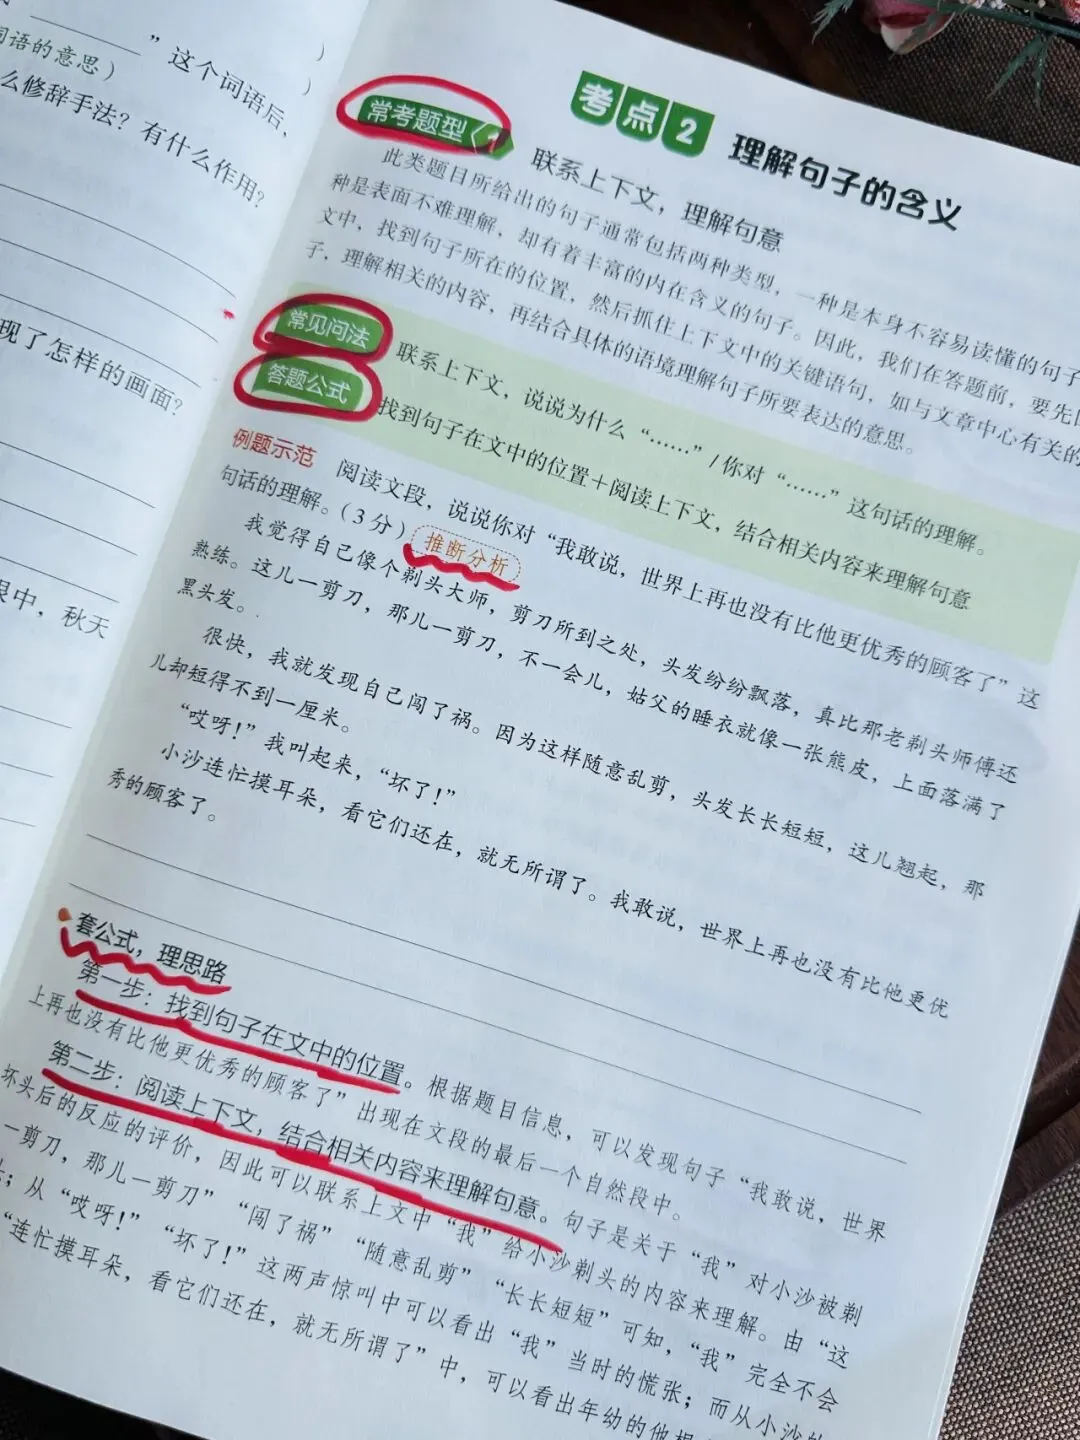 ”这个词语后，
)
词语的意思）
)
么修辞手法？有什么作用？
现了怎样的画面？
眼中，秋天
考点2 理解句子的含义
常考题型 1 联系上下文，理解句意
此类题目所给出的句子通常包括两种类型，一种是本身不容易读懂的句子
种是表面不难理解，却有着丰富的内在含义的句子。因此，我们在答题前，要先
文中，找到句子所在的位置，然后抓住上下文中的关键语句，如与文章中心有关的
子，理解相关的内容，再结合具体的语境理解句子所要表达的意思。
常见问法 联系上下文，说说为什么“……”/你对“……”这句话的理解。
答题公式 找到句子在文中的位置＋阅读上下文，结合相关内容来理解句意
例题示范 阅读文段，说说你对“我敢说，世界上再也没有比他更优秀的顾客了”这
句话的理解。（3分）推断分析
我觉得自己像个剃头大师，剪刀所到之处，头发纷纷飘落，真比那老剃头师傅还
熟练。这儿一剪刀，那儿一剪刀，不一会儿，姑父的睡衣就像一张熊皮，上面落满了
黑头发。
很快，我就发现自己闯了祸。因为这样随意乱剪，头发长长短短，这儿翘起，那
儿却短得不到一厘米。
“哎呀！”我叫起来，“坏了！”
小沙连忙摸耳朵，看它们还在，就无所谓了。我敢说，世界上再也没有比他更优
秀的顾客了。
套公式，理思路
第一步：找到句子在文中的位置。根据题目信息，可以发现句子“我敢说，世界
上再也没有比他更优秀的顾客了”出现在文段的最后一个自然段中。
第二步：阅读上下文，结合相关内容来理解句意。句子是关于“我”对小沙被剃
坏头后的反应的评价，因此可以联系上文中“我”给小沙剃头的内容来理解。由“这
一剪刀，那儿一剪刀”“闯了祸”“随意乱剪”“长长短短”可知，“我”完全不会
；从“哎呀！”“坏了！”这两声惊叫中可以看出“我”当时的慌张；而从小沙
“连忙摸耳朵，看它们还在，就无所谓了”中，可以看出年幼的他根